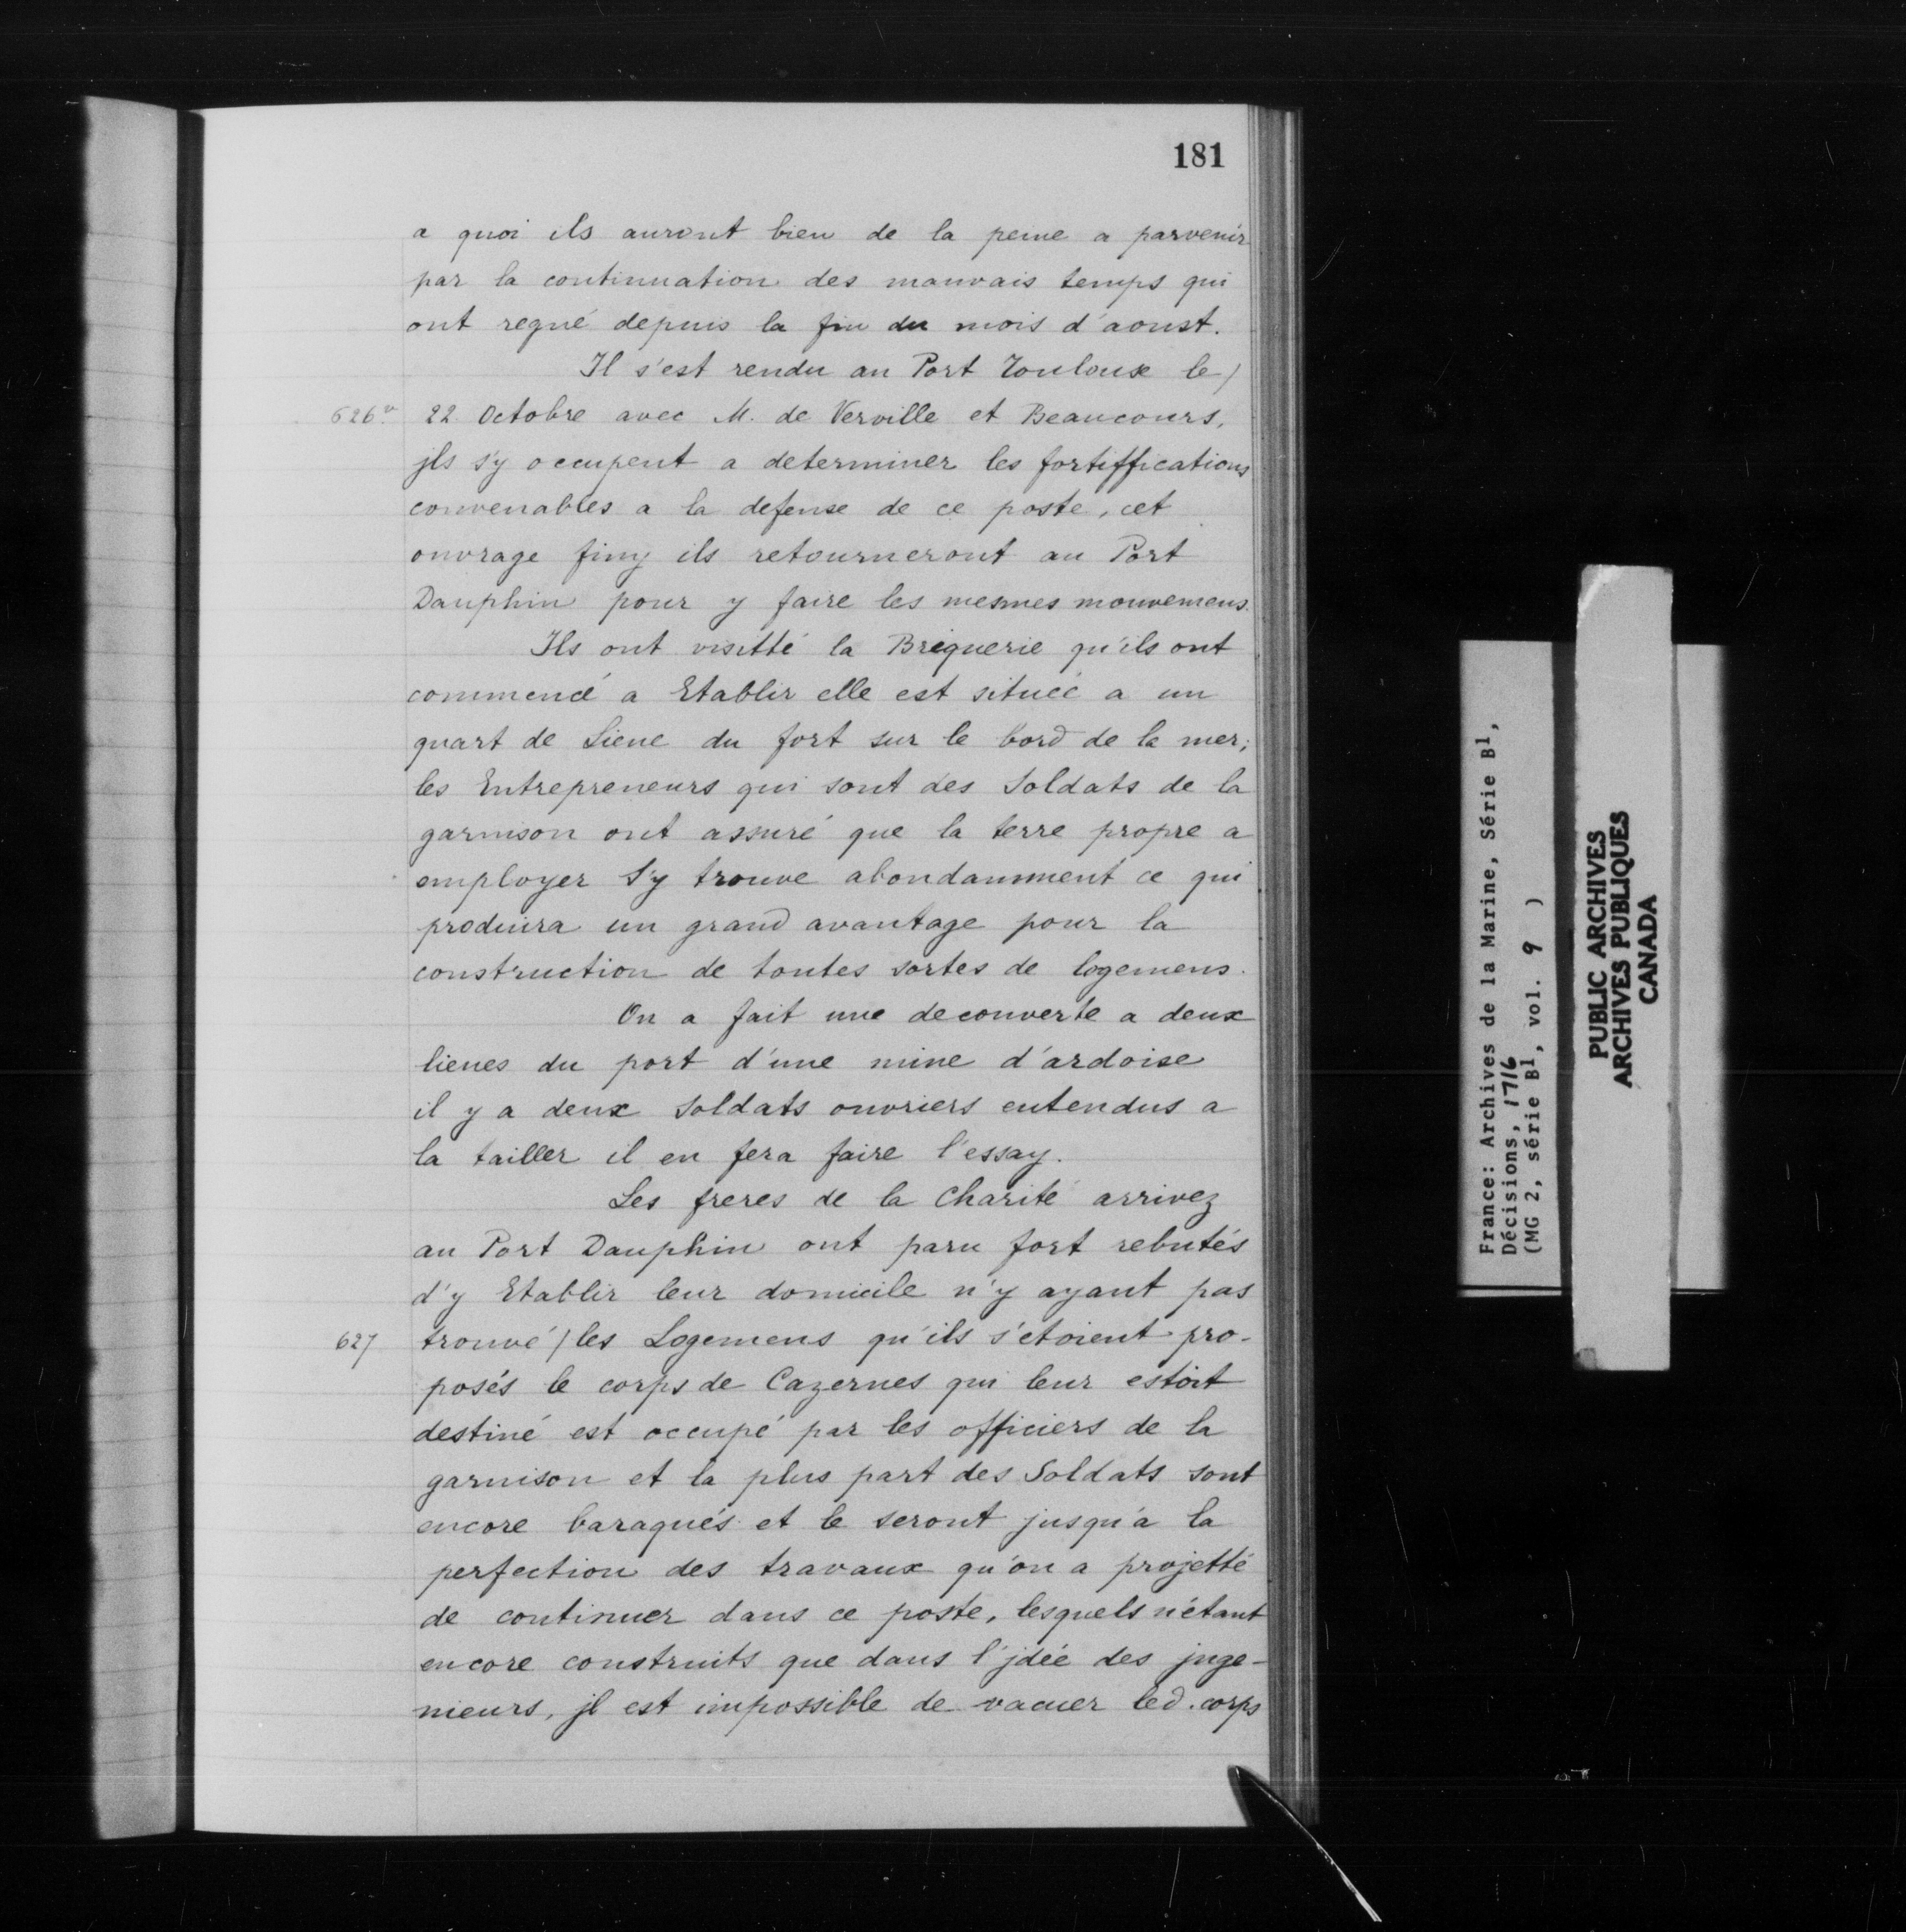 181
a quoi ils auront bien de la peine a parvenir
par la continuation des mauvais temps qui
ont regné depuis la fin du mois d'aoust.
Il s'est rendu au Port Toulouse le /
626v. 22 Octobre avec M. de Verville et Beaucours,
jls s'y occupent a determiner les fortiffications
convenables a la defense de ce poste, cet
ouvrage finy ils retourneront au Port
Dauphin pour y faire les mesmes mouvemens.
Ils ont visitté la Briquerie qu'ils ont
commencé a Etablir elle est située a un
quart de Lieue du fort sur le bord de la mer;
les Entrepreneurs qui sont des Soldats de la
garnison ont assuré que la terre propre a
employer s'y trouve abondamment ce qui
produira un grand avantage pour la
construction de toutes sortes de logemens.
On a fait une decouverte a deux
lieues du port d'une mine d'ardoise
il y a deux Soldats ouvriers entendus a
la tailler il en fera faire l'essay.
Les freres de la Charité arrivez
au Port Dauphin ont paru fort rebutés
d'y Etablir leur domicile n'y ayant pas
627 trouvé / les Logemens qu'ils s'etoient pro-
posés le corps de Cazernes qui leur estoit
destiné est occupé par les officiers de la
garnison et la plus part des Soldats sont
encore baraqués et le seront jusqu'a la
perfection des travaux qu'on a projetté
de continuer dans ce poste, lesquels n'étant
encore construits que dans l'jdée des jnge-
nieurs, jl est impossible de vacuer led. corps
France: Archives de la Marine, Série B1,
Décisions, 1716
(MG 2, série B1, vol. 9 )
PUBLIC ARCHIVES
ARCHIVES PUBLIQUES
CANADA